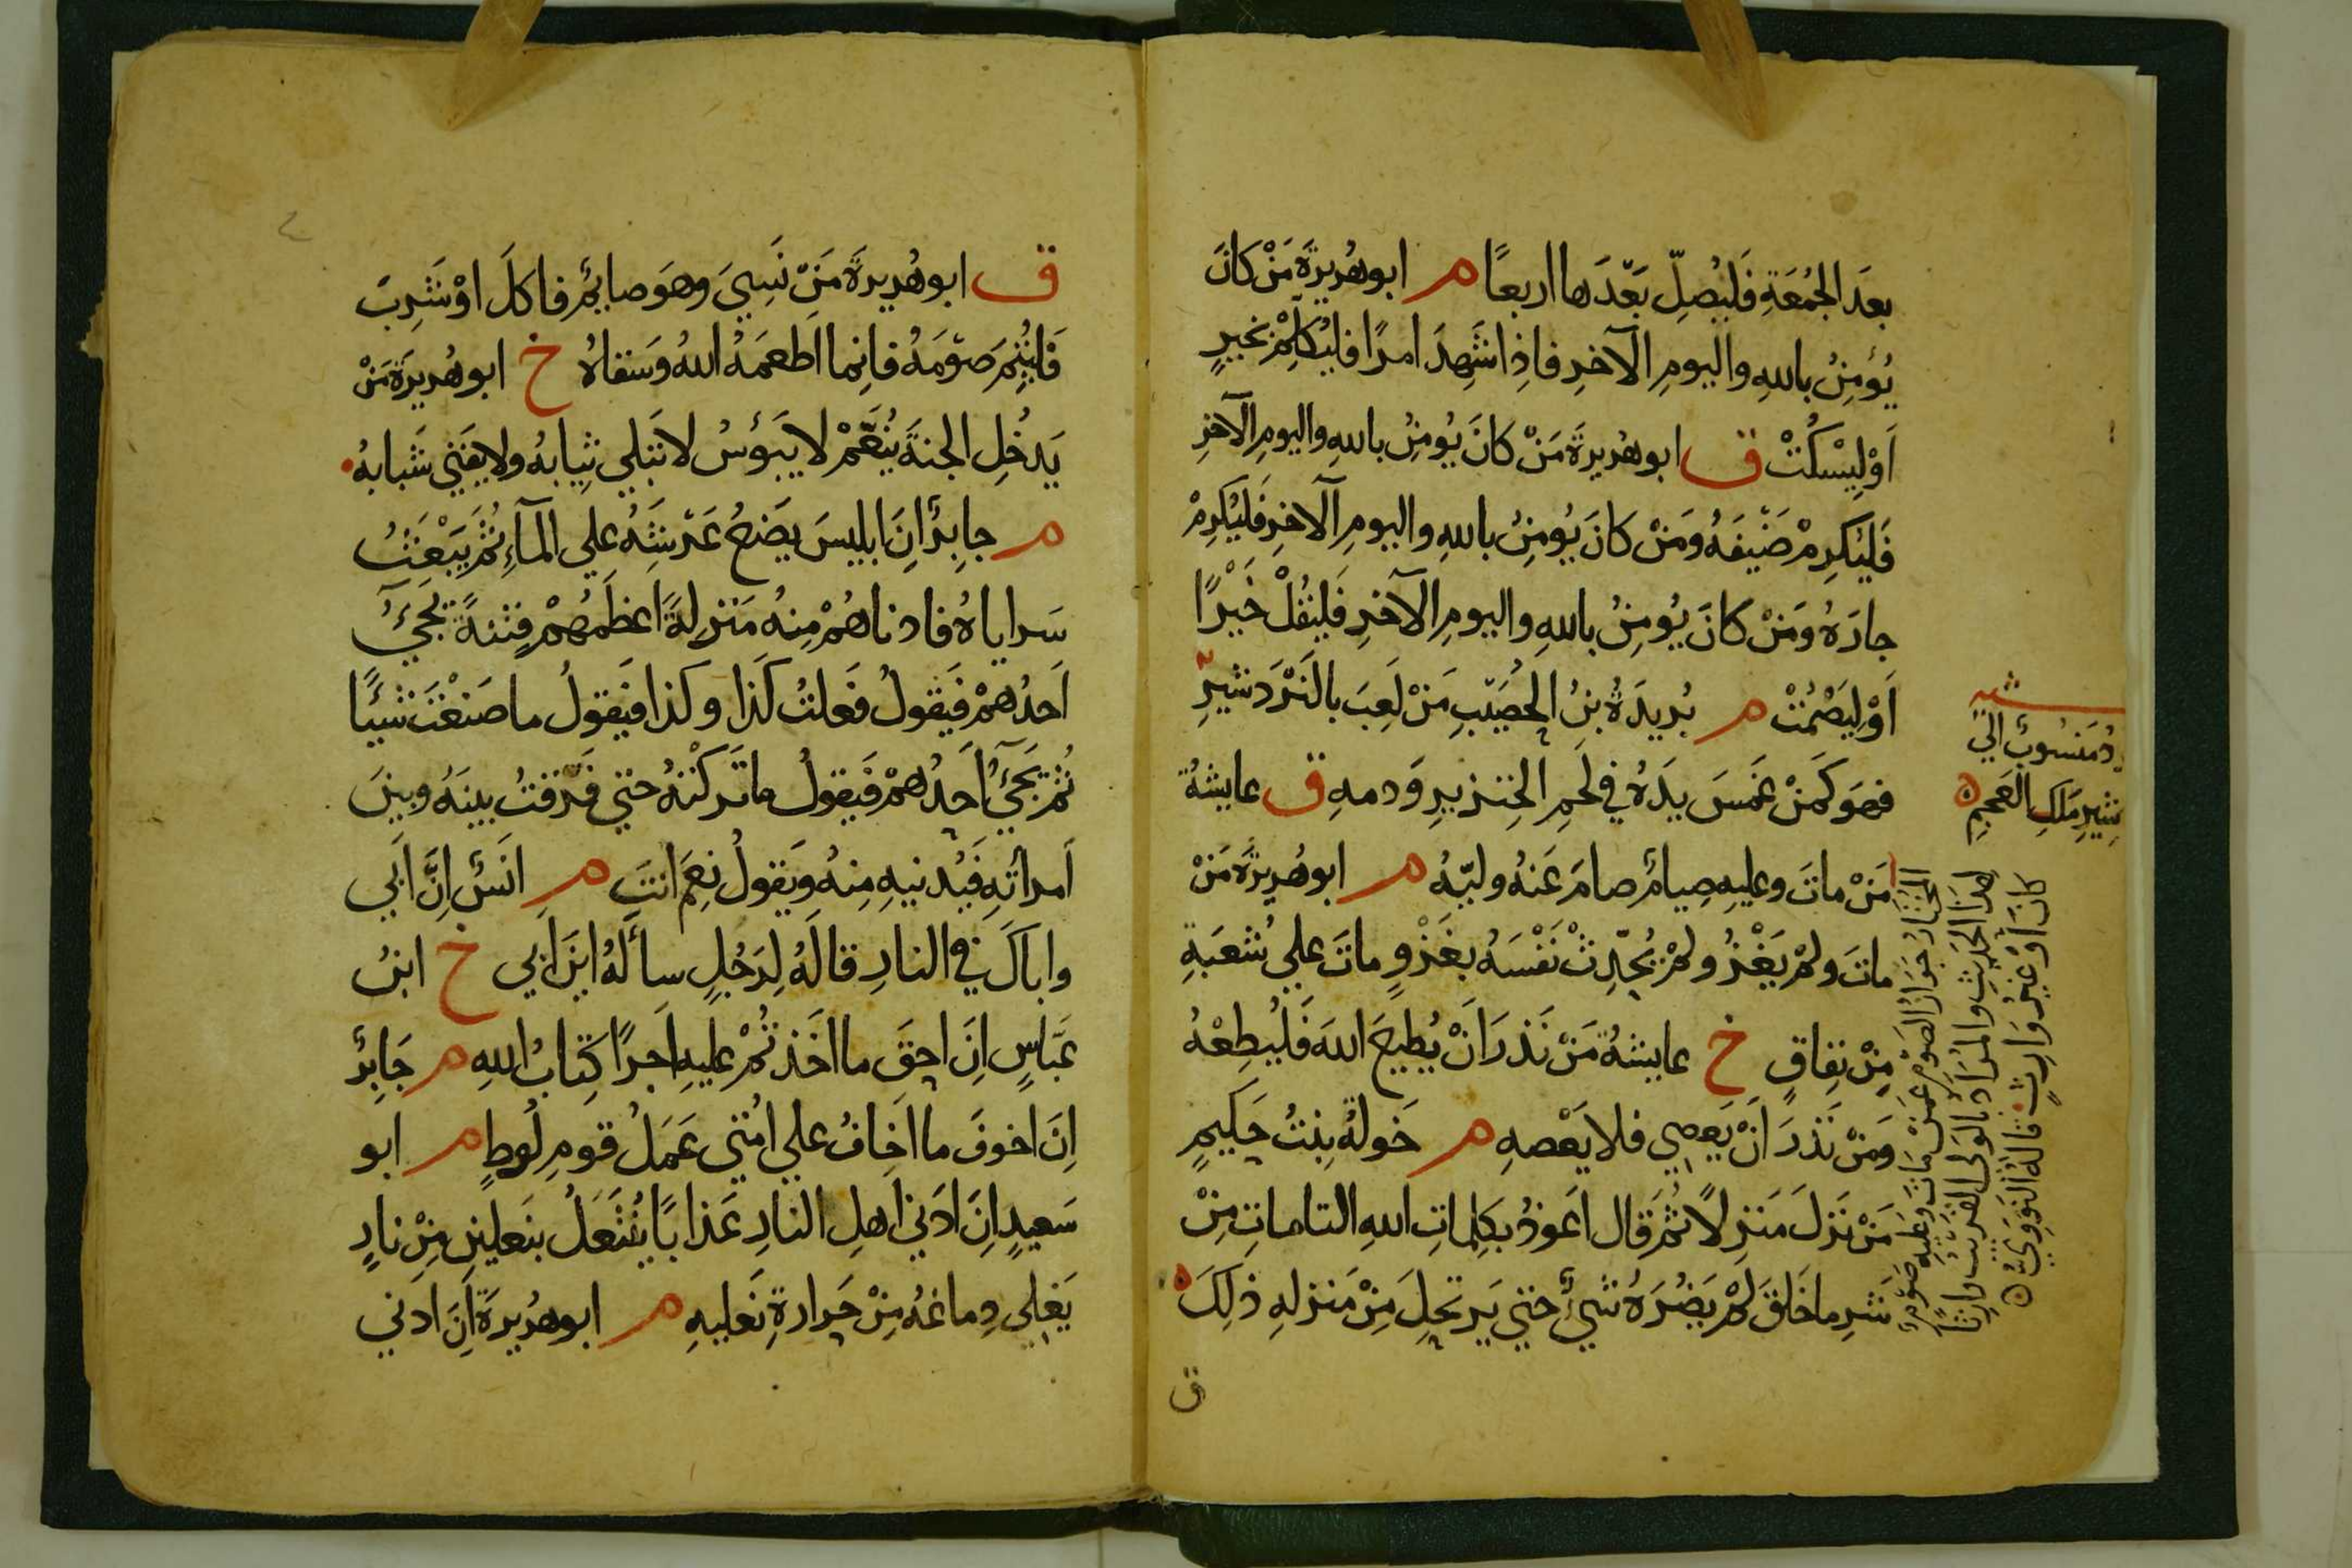 بعدَ الجُمُعَةِ فَليُصلِّ بَعْدَها اربعًا م ابوهُريرَةَ مَنْ كانَ
يُؤمِنُ باللهِ واليومِ الآخرِ فاذِا شَهِدَ امرًا فليُكلِمْ بخيرٍ
اَوْ لِيَسْكُتْ ق ابوهُريرةَ مَنْ كانَ يُومِنُ باللهِ واليومِ الآخرِ
فَليُكرِمْ ضَيْفَهُ وَمَنْ كانَ يُومِنُ باللهِ واليومِ الآخرِ فَليُكرِمْ
جارَهُ وَمَنْ كانَ يُومِنُ باللهِ واليومِ الآخرِ فَليَقُلْ خَيْرًا
اَوْ لِيَصْمُتْ م بُريدَةُ بنُ الحُصَيْبِ مَنْ لَعِبَ بالنَرْدَشيرِ
فهوَ كَمَنْ غَمَسَ يدَهُ في لَحمِ الخِنزيرِ وَدمهِ ق عايشةُ
مَنْ ماتَ وعليهِ صِيامٌ صامَ عَنهُ وليّهُ م ابوهُريرَةَ مَنْ
ماتَ ولمْ يَغْزُ ولمْ يُحَدِّثْ نَفْسَهُ بغَزْوٍ ماتَ علي شُعبَةٍ
مِنْ نِفاقٍ خ عايشةُ مَنْ نَذرَ اَنْ يُطيعَ اللهَ فَليُطِعْهُ
وَمَنْ نَذرَ اَنْ يَعصِي فلا يَعْصهِ م خَولةُ بِنتُ حَكيمٍ
مَنْ نَزلَ مَنزِلاً ثُمَ قال اَعوذُ بكلِماتِ اللهِ التاماتِ مِنْ
شَرِ ما خَلقَ لمْ يَضُرَهُ شيءٌ حتي يَرتحِلَ مِنْ مَنزلهِ ذلِكَ
ق
شير
دُ مَنسُوبٌ الي
شِيرِ مَلكِ العَجمِ
المختارُ جَوازُ الصَّوْمِ عَمَّنْ مَاتَ وَعَليهِ صَوْمٌ
لهذا الحَديثِ والمُرَادُ بالوَلى القَريبُ وارثًا
كانَ اَوْ غيرُ وَارِثٍ قالهُ النَّوَوِيُّ
ق ابوهُريرةَ مَنْ نَسِيَ وهوَ صايمٌ فاكلَ اوْ شَرِبَ
فَليُتِمَ صَوْمَهُ فانِما اَطعمَهُ اللهُ وَسَقاهُ خ ابوهُريرَةَ مَنْ
يَدخُلِ الجنةَ يُنَعَّمْ لا يَبؤسُ لا تَبلي ثِيابهُ ولا يَفنَي شَبابهُ
م جابِرٌ انَِ ابليسَ يضَعُ عَرْشَهُ علي المآءِ ثُمَ يَبْعَثُ
سَراياهُ فادناهُمْ مِنهُ مَنزِلةً اعظَمُهُمْ فِتنةً يَجيُ
اَحدُهمْ فَيَقولُ فَعلتُ كَذا وكذا فيَقولُ ما صَنَعْتَ شيئًا
ثُمَ يَجَيُ اَحدُهمْ فَيقولُ ما تَركْتهُ حتي فَرَقتُ بينَهُ وبينَ
اَمراَتِهِ فَيُدنيهِ مِنهُ وَيَقولُ نِعمَ انتَ م انَسٌ اِنَّ اَبي
واباكَ في النارِ قالَهُ لِرَجُلٍ سألهُ اينَ اَبي خ ابنُ
عَبَّاسٍ اِنَ احقَ ما اخَذتُمْ عليهِ اَجرًا كِتابُ اللهِ م جَابِرٌ
اِنَ اخوفَ ما اخافُ علي امُتي عَمَلُ قومِ لُوطٍ م ابو
سَعيدٍ اِنَ اَدَني اَهلِ النارِ عَذابًا يُنْتَعَلُ بنَعلينِ مِنْ نارٍ
يَغلِي دِماغهُ مِنْ حَرارةِ نَعليهِ م ابوهُريرَةَ اَنَ ادَني